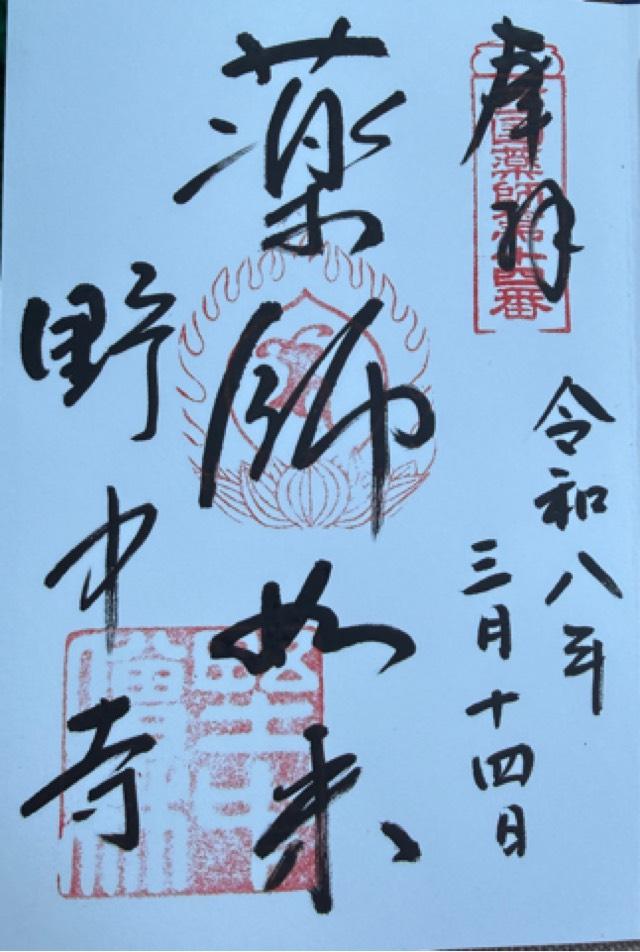 奉拝
西国薬師第十四番
令和八年
三月十四日
薬師如来
野中寺